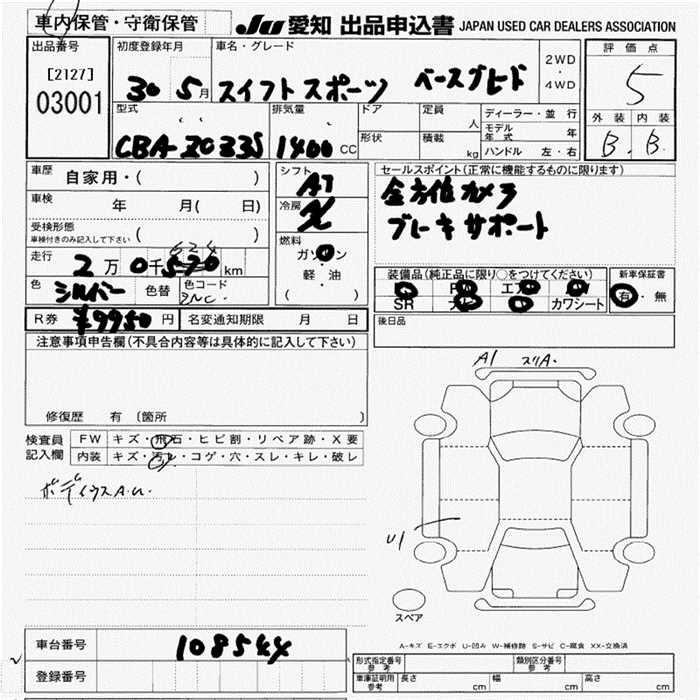 車内保管・守衛保管 JU 愛知 出品申込書 JAPAN USED CAR DEALERS ASSOCIATION
出品番号 初度登録年月 車名・グレード 評価点
[2127] 30 5月 スイフトスポーツ ベースグレード 2WD・4WD 5
03001 型式 排気量 ドア 定員 人 ディーラー・並行 外装 内装
CBA-ZC33S 1400 CC 形状 積載 kg モデル年式 年 B. B.
ハンドル 左・右
車歴 自家用・( ) シフト AT セールスポイント(正常に機能するものに限ります)
車検 年 月( 日) 冷房 全方位カメラ
受検形態 ブレーキサポート
車検付きのみ記入して下さい ( ) 燃料 ガソリン
走行 2万0千 624 km 軽・油
色 シルバー 色替 色コード ZNC ( )
装備品(純正品に限り○をつけてください) 新車保証書
SR カワシート 有・無
R券 ¥9950円 名変通知期限 月 日 後日品
注意事項申告欄(不具合内容等は具体的に記入して下さい)
修復歴 有 〔箇所 〕
A1 スリA.
検査員 FW キズ・飛石・ヒビ割・リペア跡・X要
記入欄 内装 キズ・汚レ・コゲ・穴・スレ・キレ・破レ
ボディウスA.U.
U1
スペア
A-キズ E-エクボ U-凹み W-補修跡 S-サビ C-腐食 XX-交換済
車台番号 108544
登録番号
形式指定番号 参考 類別区分番号 参考
車庫証明用 参考 長さ cm 幅 cm 高さ cm